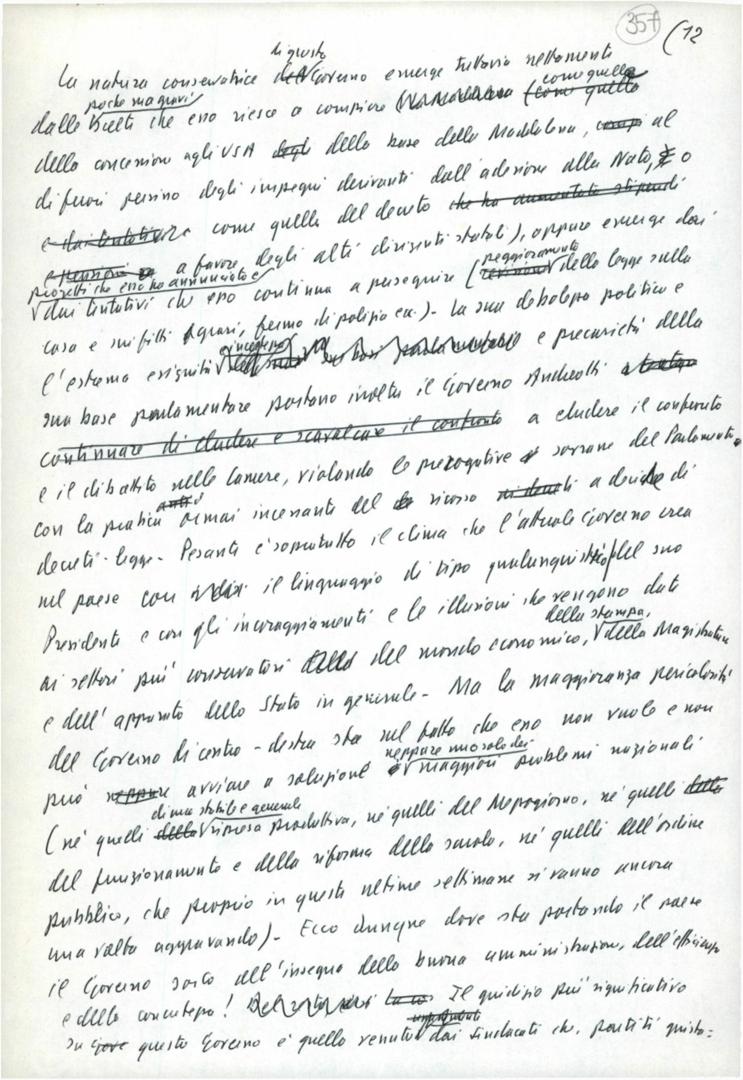 357 (12
di questo
La natura conservatrice del Governo emerge tuttavia nettamente
poche ma gravi come quella
dalle scelte che esso riesce a compiere (come quella
della concessione agli USA degli della base della Maddalena, al
di fuori persino degli impegni derivanti dall'adesione alla Nato, o
e dai tentativi come quella del decreto che ha aumentato stipendi
e pensioni a favore degli alti dirigenti statali), oppure emerge dai
progetti che esso ha annunciato e peggioramento
dai tentativi che esso continua a perseguire (della legge sulla
casa e sui fitti agrari, fermo di polizia ecc.). La sua debolezza politica e
l'estrema esiguità incertezza sua base parlamentare e precarietà della
sua base parlamentare portano inoltre il Governo Andreotti a
continuare di eludere e scavalcare il confronto a eludere il confronto
e il dibattito nelle Camere, violando le prerogative sovrane del Parlamento
con la pratica ormai incessante del ricorso a decine di
decreti-legge. Pesante è soprattutto il clima che l'attuale Governo crea
nel paese con il linguaggio di tipo qualunquistico del suo
Presidente e con gli incoraggiamenti e le illusioni che vengono date
della stampa,
ai settori più conservatori del mondo economico, della Magistratura
e dell'apparato dello Stato in generale. Ma la maggioranza pericolosità
del Governo di centro-destra sta nel fatto che esso non vuole e non
neppure uno solo dei
può neppure avviare a soluzione i maggiori problemi nazionali
di una stabile e generale
(né quelli della ripresa produttiva, né quelli del Mezzogiorno, né quelli della
del funzionamento e della riforma della scuola, né quelli dell'ordine
pubblico, che proprio in queste ultime settimane si vanno ancora
una volta aggravando). Ecco dunque dove sta portando il paese
il Governo sorto all'insegna della buona amministrazione, dell'efficienza
e della concretezza! Il giudizio più significativo
su questo Governo è quello venuto dai sindacati che, partiti giusta=